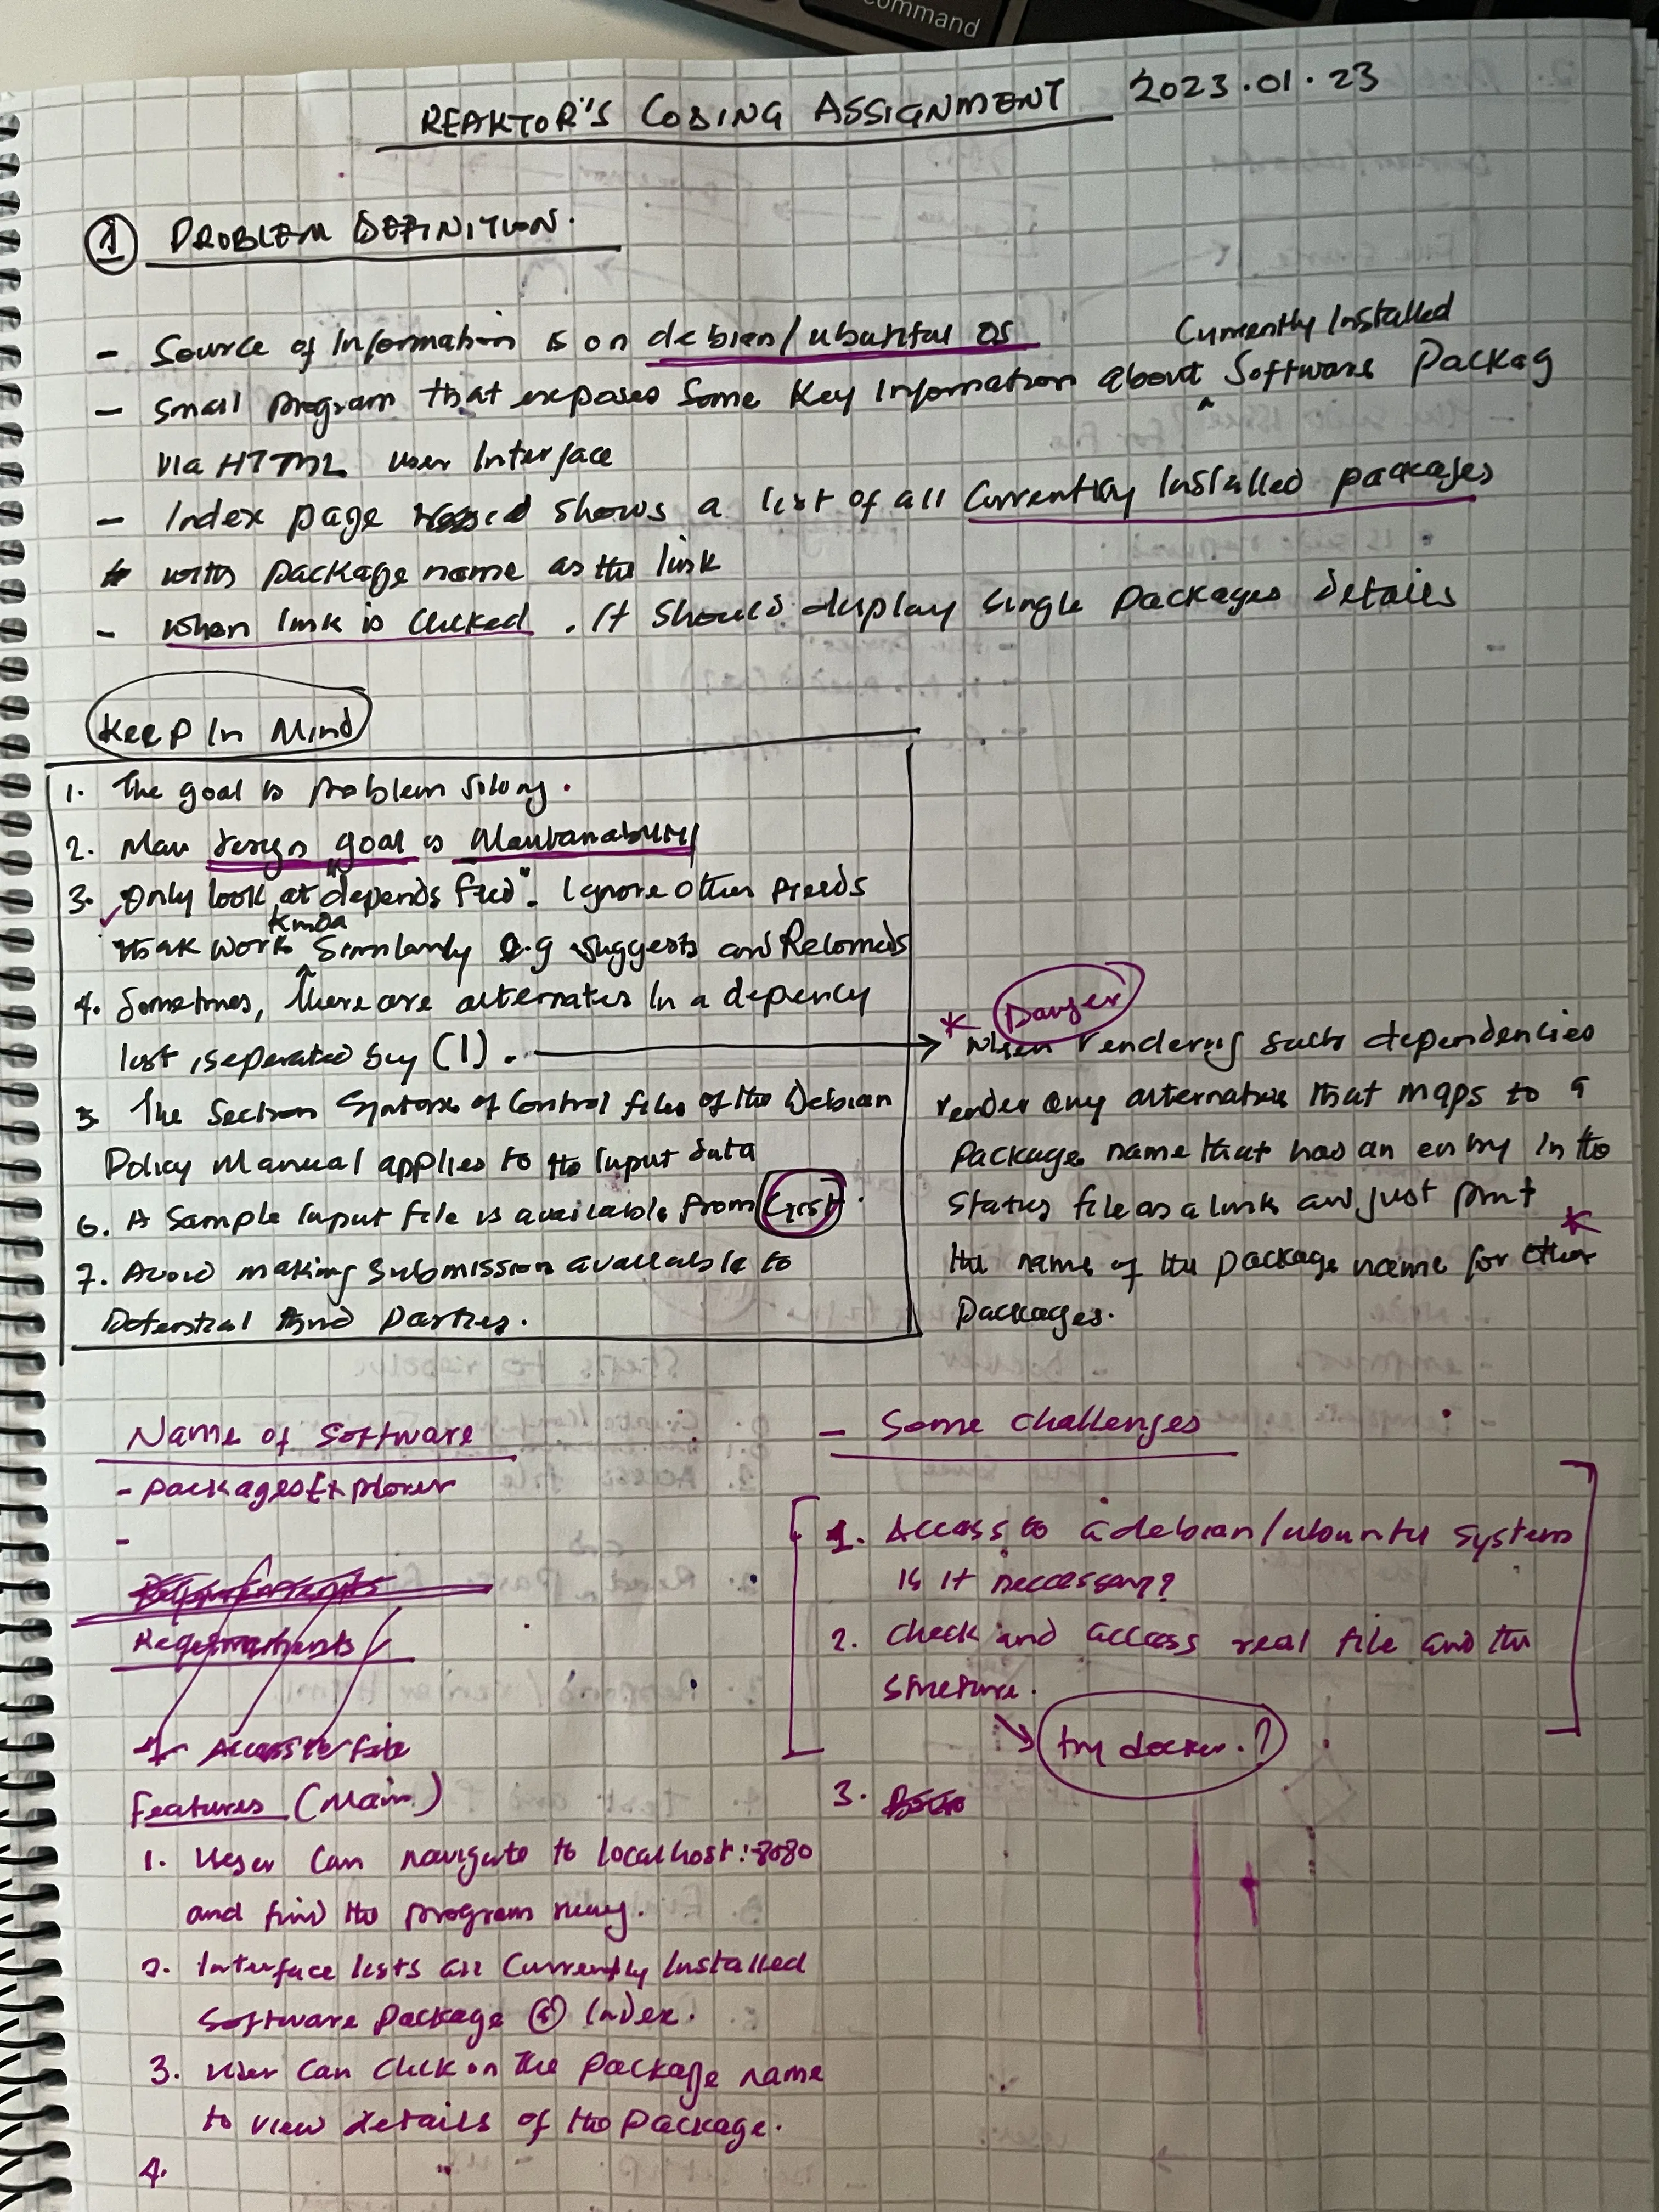 command
REAKTOR'S CODING ASSIGNMENT 2023.01.23
① PROBLEM DEFINITION.
- Source of Information is on debian/ubuntu OS
Currently Installed
- Small program that exposes Some Key Information about ^ Software Packag
via HTML user Interface
- Index page shows a list of all Currently Installed packages
with package name as the link
- When link is clicked. It should display single packages details
Keep In Mind
1. The goal is problem solving.
2. Main design goal is Maintanability
3. Only look at "depends field". Ignore other fields
kinda
that work ^ similarly e.g suggests and Recomeds
4. Sometimes, there are alternates in a depency
list, seperated by (|).
5. The Section Syntax of Control files of the Debian
Policy Manual applies to the Input data
6. A Sample Input file is available from Gist.
7. Avoid making submission available to
Potential third parties.
* Danger
When rendering such dependencies
render any alternative that maps to a
Package name that has an entry in the
Status file as a link and just print
the name of the package name for other *
packages.
Name of Software
- PackagesExplorer
-
Requirements
1. Access to file
Features (Main)
1. User can navigate to localhost:8080
and find the program runing.
2. Interface lists all Currently Installed
Software Package @ Index.
3. User can click on the package name
to view details of the package.
4.
- Some challenges
1. Access to a debian/ubuntu system
is it neccessary?
2. Check and access real file and the
structure.
try docker.?
3.